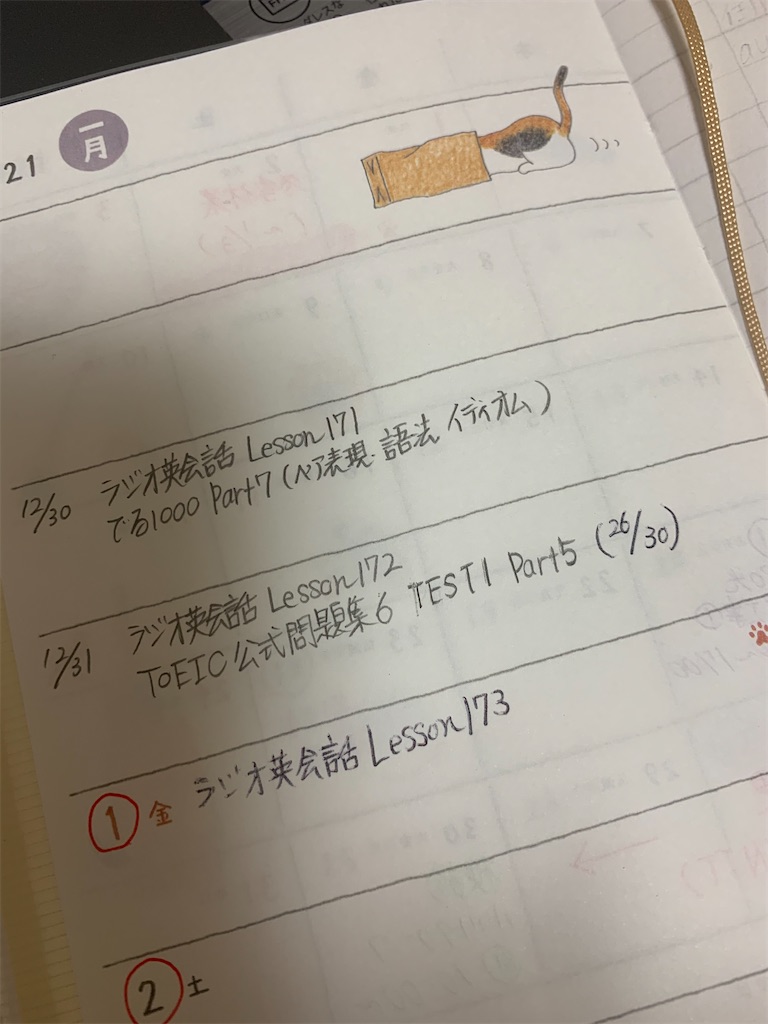 21 一月
12/30 ラジオ英会話 Lesson171
でる1000 Part7 (ペア表現・語法 イディオム)
12/31 ラジオ英会話 Lesson172
TOEIC公式問題集6 TEST1 Part5 (26/30)
1 金 ラジオ英会話 Lesson173
2 土